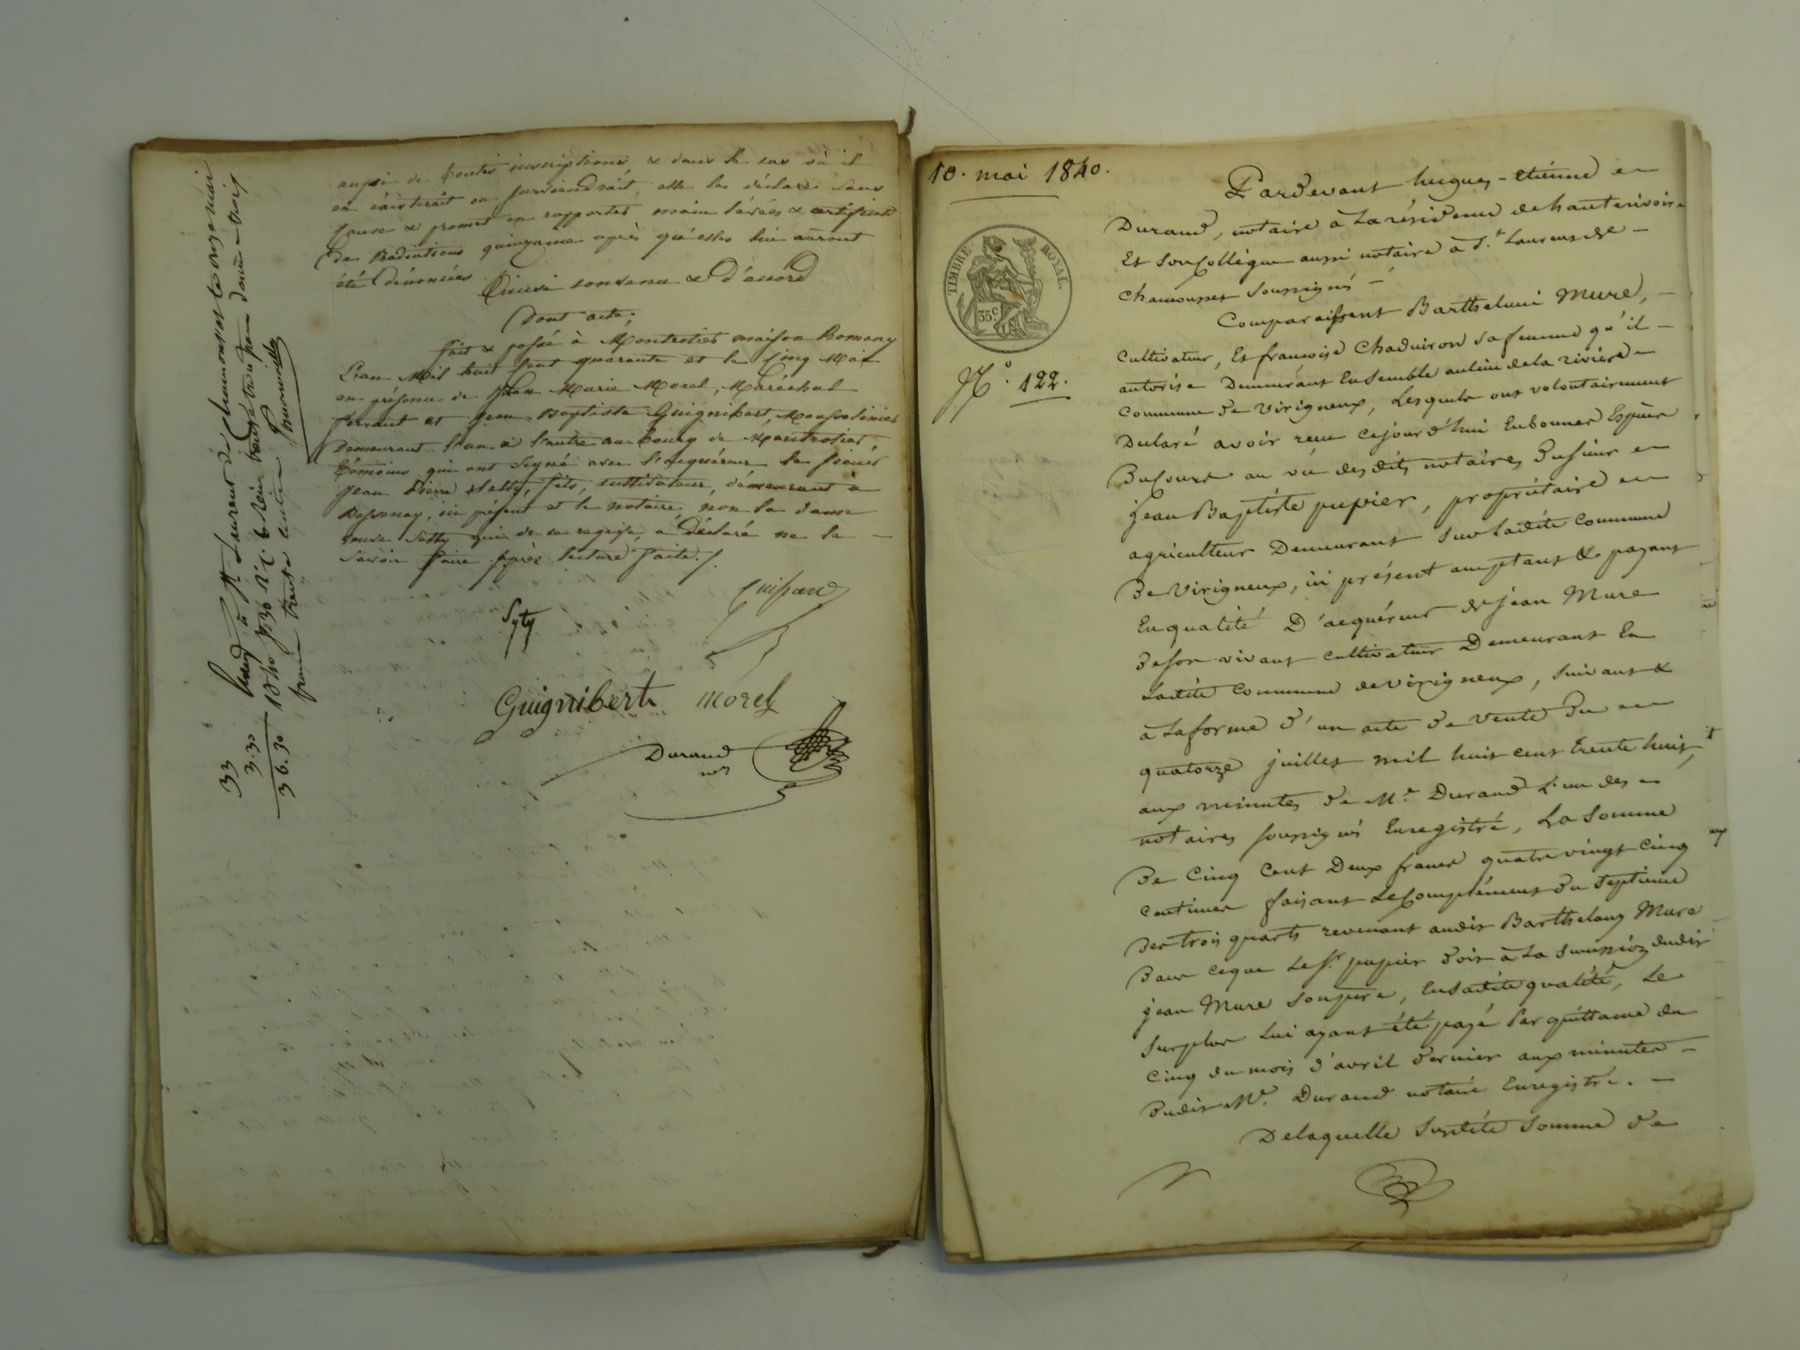 aussi de toutes inscriptions & dans le cas où il
en existerait ou surviendrait, elle les déclare sans
cause & promet en rapporter main levées & certificat
de Radiations quinzaine après qu'elles lui auront
été dénoncées.
Ainsi convenu & d'accord
Dont acte;
fait & passé à Montrotier maison Romany
L'an Mil huit cent quarante et le cinq Mai
en présence de Jean Marie Morel, Maréchal
ferrant et Jean Baptiste Guignibert,
demeurant l'un & l'autre au bourg de Montrotier
témoins qui ont signé avec l'acquéreur le
Jean Pierre fils, cultivateur, demeurant à
ici présent et le notaire, non la dame
veuve qui de ce requise, a déclaré ne le –
savoir faire après lecture faite./.
Guignibert Morel
Durand
nre
à St. Laurent de Chamousset le onze mai
1840
franc trente
33
3.30
36.30
10. mai 1840.
TIMBRE ROYAL.
35c
No. 122.
Pardevant hugues-étienne
Durand, notaire à La résidence de hauterivoire
Et Son Collègue aussi notaire à St. Laurent de –
chamousset Soussignés –
Comparaissent Barthelemi Mure, –
Cultivateur, Et françoise Chaduiron sa femme qu'il –
autorise Demeurant Ensemble au lieu de la rivière
commune de Virigneux, Lesquels ont volontairement
Déclaré avoir reçu cejourd'hui En bonnes Espèces
Du Cours au vû des dits notaires Du sieur
jean Baptiste pupier, propriétaire
agriculteur Demeurant Sur Ladite commune
De Virigneux, ici présent acceptant & payant
En qualité D'acquéreur de jean Mure
De son vivant cultivateur Demeurant En
Ladite Commune de virigneux, Suivant &
à La forme d'un acte de Vente Du
quatorze juillet mil huit cent trente huit,
aux minutes de Me. Durand L'un des
notaires soussignés Enregistré, La Somme
De Cinq Cent Deux francs quatre vingt cinq
centimes faisant Le Complément Du Septieme
Des trois quarts revenant audit Barthelemy Mure
Dans ce que Le Sr. pupier doit à La Succession dudit
jean Mure Son père, En Sadite qualité, Le
Surplus Lui ayant été payé Par quittance du
Cinq du mois d'avril dernier aux minutes –
Dudit Me. Durand notaire Enregistré. –
De laquelle Susdite Somme de